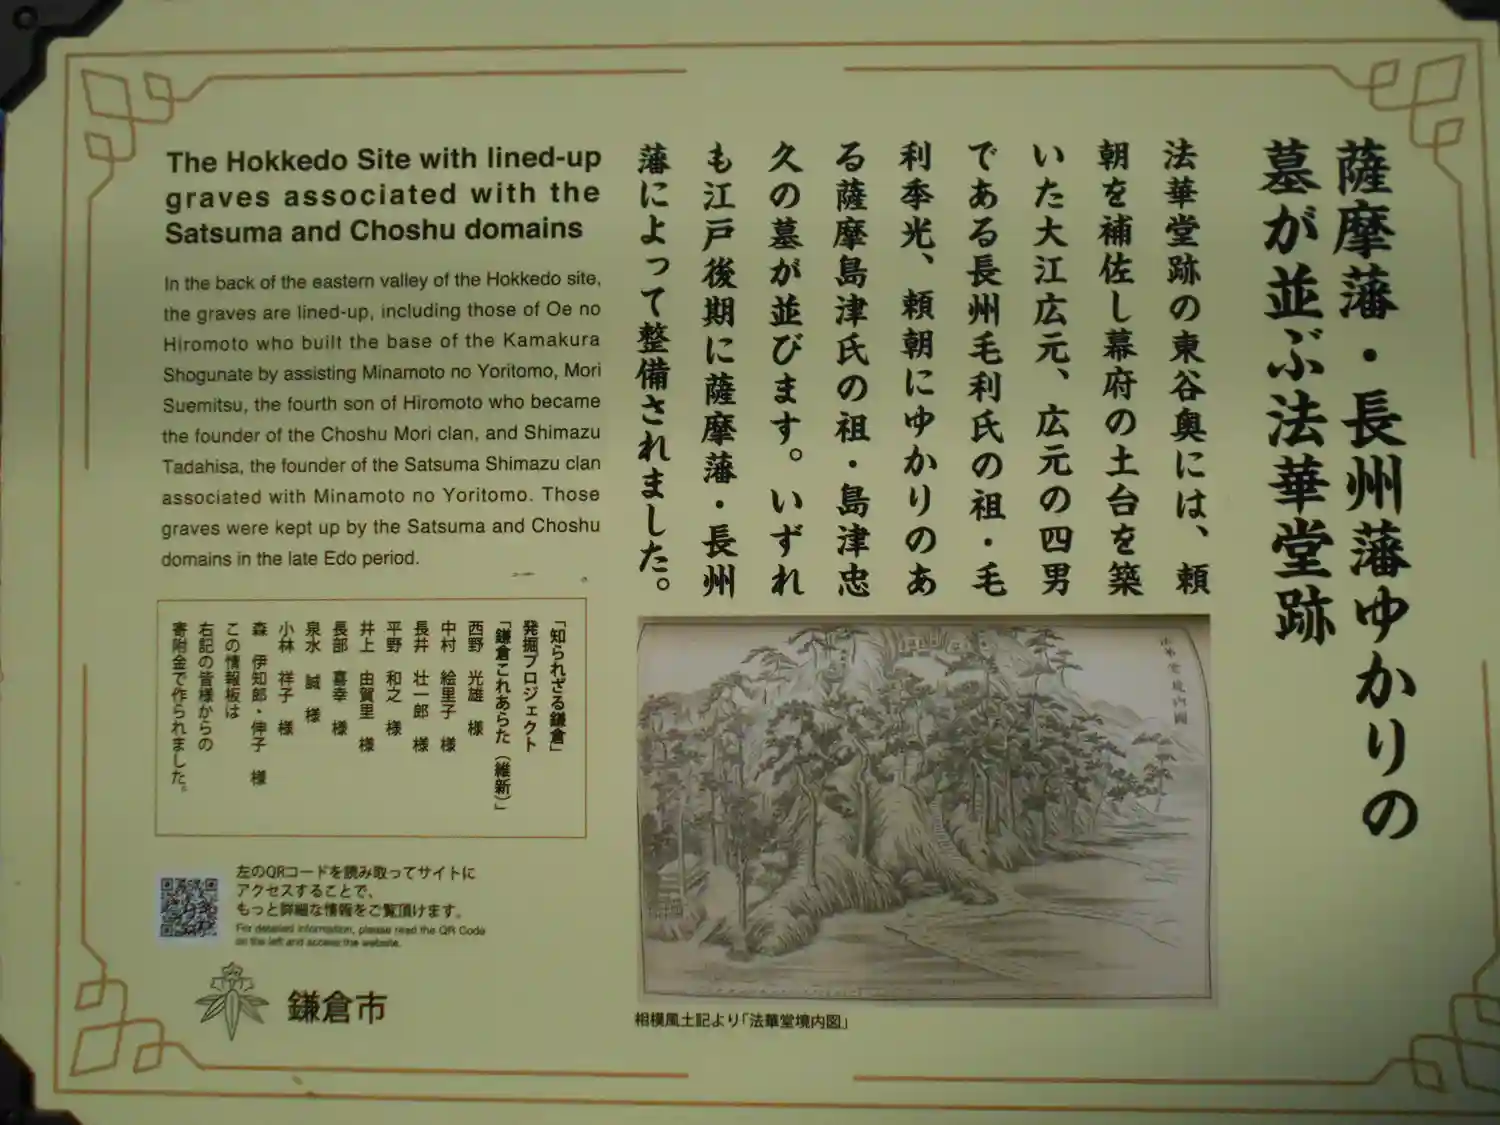 薩摩藩・長州藩ゆかりの
墓が並ぶ法華堂跡
法華堂跡の東谷奥には、頼
朝を補佐し幕府の土台を築
いた大江広元、広元の四男
である長州毛利氏の祖・毛
利季光、頼朝にゆかりのあ
る薩摩島津氏の祖・島津忠
久の墓が並びます。いずれ
も江戸後期に薩摩藩・長州
藩によって整備されました。
The Hokkedo Site with lined-up
graves associated with the
Satsuma and Choshu domains
In the back of the eastern valley of the Hokkedo site,
the graves are lined-up, including those of Oe no
Hiromoto who built the base of the Kamakura
Shogunate by assisting Minamoto no Yoritomo, Mori
Suemitsu, the fourth son of Hiromoto who became
the founder of the Choshu Mori clan, and Shimazu
Tadahisa, the founder of the Satsuma Shimazu clan
associated with Minamoto no Yoritomo. Those
graves were kept up by the Satsuma and Choshu
domains in the late Edo period.
「知られざる鎌倉」
発掘プロジェクト
「鎌倉これあらた（維新）」
西野 光雄 様
中村 絵里子 様
長井 壮一郎 様
平野 和之 様
井上 由賀里 様
長部 喜幸 様
泉水 誠 様
小林 祥子 様
森 伊知郎・伸子 様
この情報板は
右記の皆様からの
寄附金で作られました。
法華堂境内図
相模風土記より「法華堂境内図」
左のQRコードを読み取ってサイトに
アクセスすることで、
もっと詳細な情報をご覧頂けます。
For detailed information, please read the QR Code
on the left and access the website.
鎌倉市